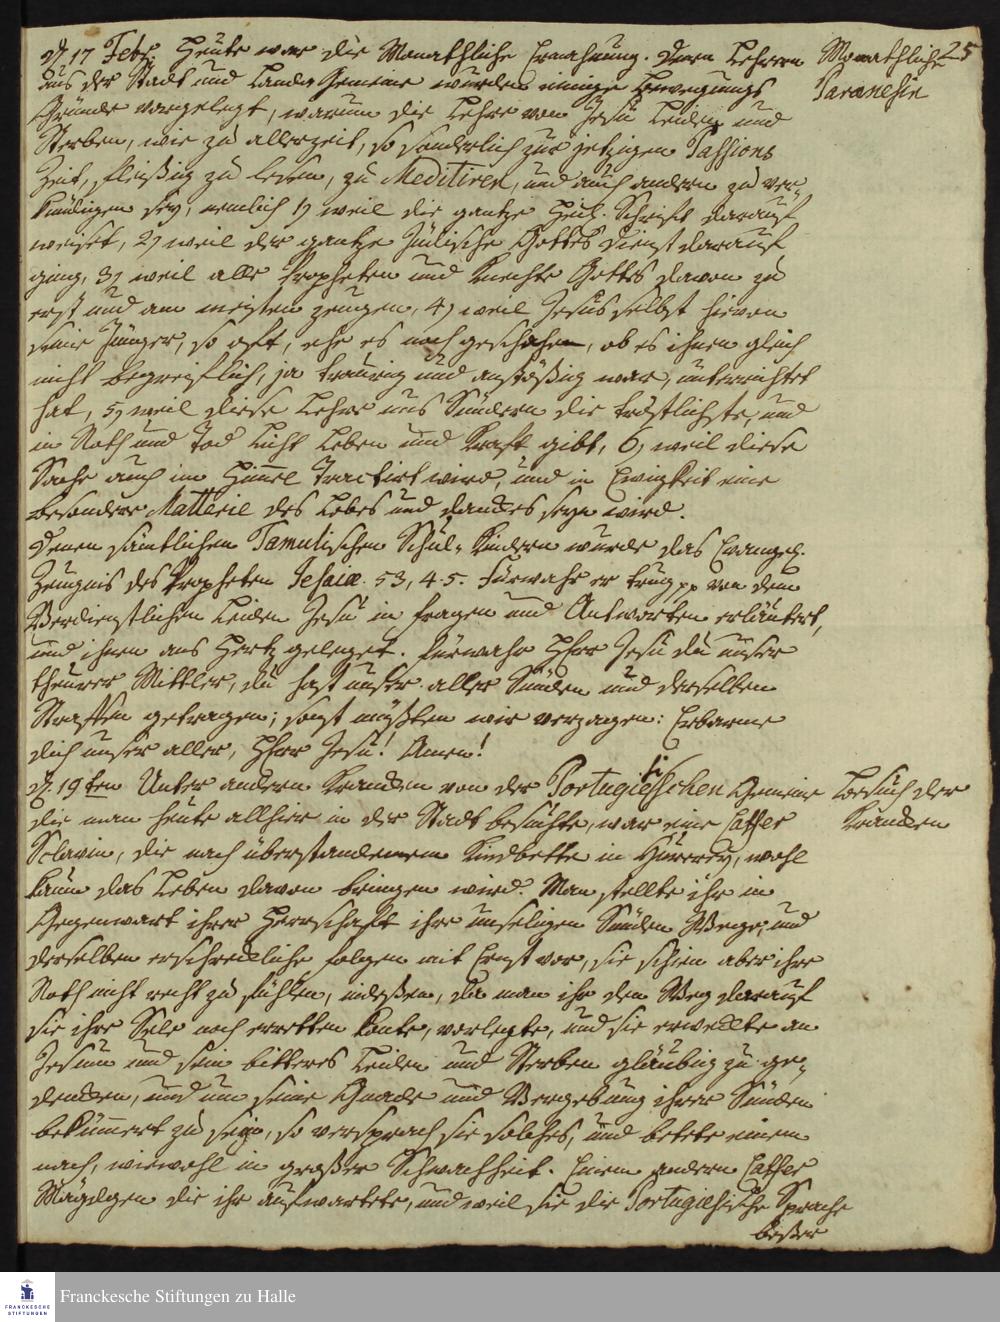 25
d. 17 Febr. Heute war die Monathliche Ermahnung. Denen Lehrern
Monathliche
Paraenesin
aus der Stadt und Land Gemeine wurden einige bewegungs
Gründe vorgelegt, warum die Lehre von Jesu Leiden und
Sterben, wie zu allerzeit, so sonderlich zur jetzigen Passions
Zeit, fleißig zu lesen, zu Meditiren, und auch andern zu ver¬
kündigen sey, nemlich 1) weil die gantze Heil. Schrift darauf
weiset, 2) weil der gantze Jüdische Gottes dienst darauf
ging, 3) weil alle Propheten und Knechte Gottes davon zu
erst und am meisten zeugen, 4) weil Jesus selbst hievon
seine Jünger, so oft, ehe es noch geschahe, ob es ihnen gleich
nicht begreiflich, ja traurig und anstößig war, unterrichtet
hat, 5) weil diese Lehre uns Sündern die tröstlichste, und
in Noth und Tod Licht Leben und Kraft gibt, 6) weil diese
Sache auch im Himel tractirt wird, und in Ewigkeit eine
besondere Matterie des Lobes und Danckes seyn wird.
Denen sämtlichen Tamulischen Schul-Kindern wurde das Evangel.
Zeugnis des Propheten Jesaiae. 53, 4.5. Fürwahr er trug pp von dem
Verdienstlichen Leiden Jesu in fragen und Antworten erläutert,
und ihnen ans Hertz geleget. Fürwahr HErr Jesu du unser
theurer Mittler, du hast unser aller Sünden und derselben
Straffen getragen; sonst müßten wir verzagen: Erbarme
dich unser aller, HErr Jesu! Amen!
d. 19ten Unter andern Krancken von der Portugiesischen Gemeine
Besuch der
Krancken
die man heute allhier in der Stadt besuchte, war eine Caffer
Sclavin, die nach überstandenem Kindbette in Hurerey, wohl
kaum das Leben davon bringen wird. Man stellte ihr in
Gegenwart ihrer Herrschaft ihre unseligen Sünden Wege, und
derselben erschreckliche folgen mit Ernst vor, sie schien aber ihre
Noth nicht recht zu fühlen, indeßen, da man ihr den Weg darauf
sie ihre Sele noch erretten konte, vorlegte, und sie erweckte an
Jesum und sein bitteres Leiden und Sterben gläubig zu ge¬
dencken, und um seine Gnade und Vergebung ihrer Sünden
bekümert zu seyn, so versprach sie solches, und betete einem
nach, wiewohl in großer Schwachheit. Einem andern Caffer
Mägdgen die ihr aufwartete, und weil sie die Portugiesische Sprache
beßer
Franckesche Stiftungen zu Halle
FRANCKESCHE
STIFTUNGEN